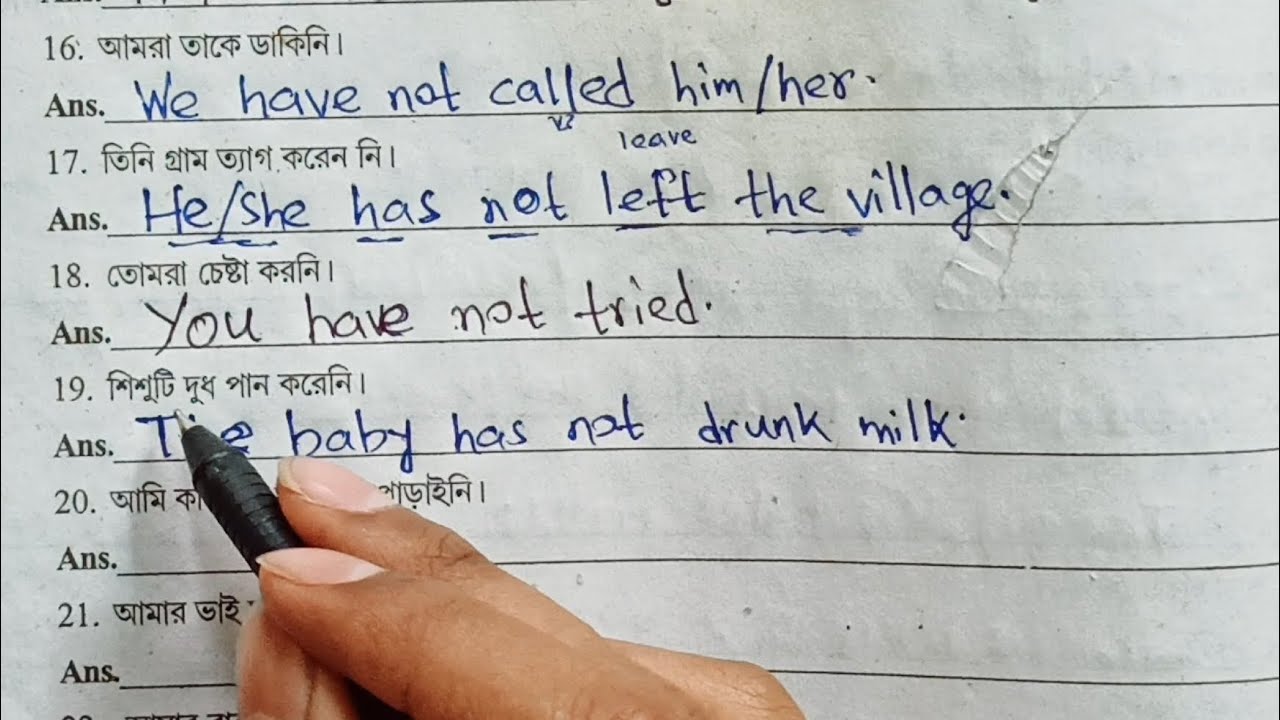 16. আমরা তাকে ডাকিনি।
Ans. We have not called him/her.
v3
leave
17. তিনি গ্রাম ত্যাগ করেন নি।
Ans. He/She has not left the village.
18. তোমরা চেষ্টা করনি।
Ans. You have not tried.
19. শিশুটি দুধ পান করেনি।
Ans. The baby has not drunk milk.
20. আমি
Ans.
21. আমার ভাই
Ans.